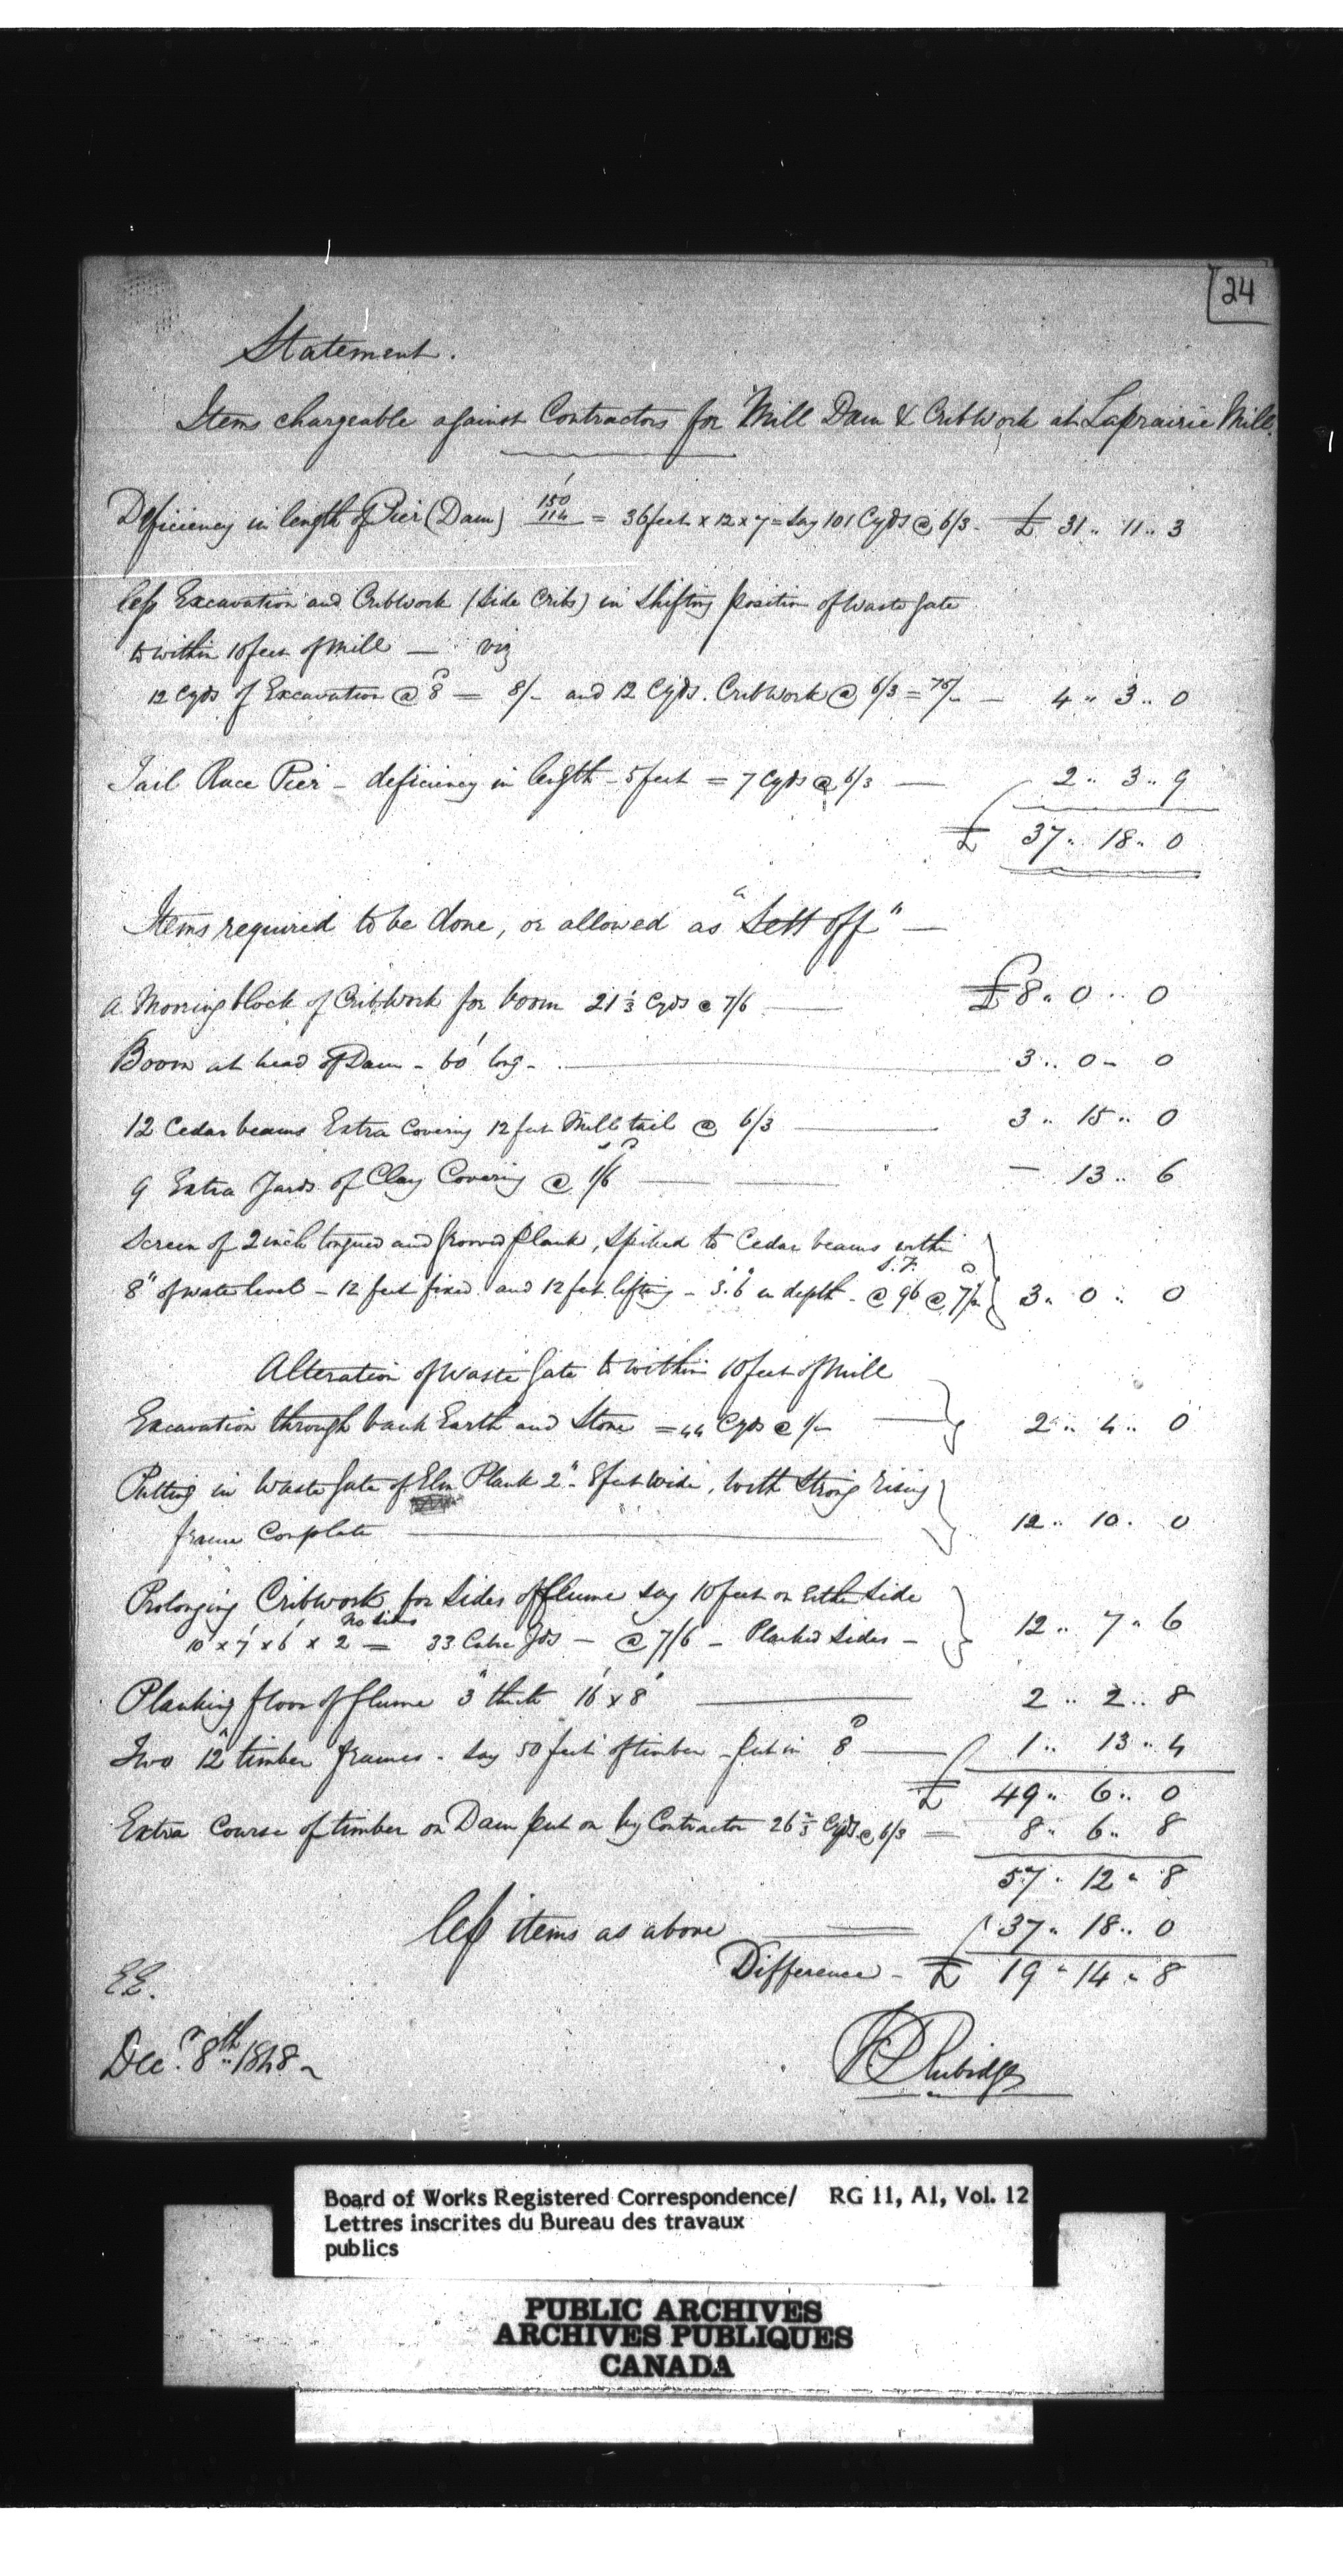 24
Statement.
Items chargeable against Contractors for Mill Dam & CribWork at Laprairie Mill.
Deficiency in length of Pier (Dam) 150'/114 = 36 feet x 12 x 7 = say 101 Cyds @ 6/3 - £ 31 .. 11 .. 3
less Excavation and Cribwork (Side Cribs) in shifting position of waste gate
to within 10 feet of mill — viz
12 Cyds of Excavation @ 8d = 8/- and 12 Cyds. CribWork @ 6/3 = 75/- — 4 .. 3 .. 0
Tail Race Pier - deficiency in length - 5 feet = 7 Cyds @ 6/3 — 2 .. 3 .. 9
£ 37 .. 18 .. 0
Items required to be done, or allowed as "Sett off" —
A Mooring block of Cribwork for boom 21 1/3 Cyds @ 7/6 — £ 8 .. 0 .. 0
Boom at head of Dam - 60' long - — 3 .. 0 - 0
12 Cedar beams Extra Covering 12 feet Mill tail @ 6/3 — 3 .. 15 .. 0
9 Extra Yards of Clay Covering @ 1/6 — — 13 .. 6
Screen of 2 inch tongued and grooved plank, spiked to Cedar beams within
8" of water level - 12 feet fixed and 12 feet lifting - 3'.6" in depth - @ 96 S.F. @ 7½d 3 .. 0 .. 0
Alteration of Waste Gate to within 10 feet of Mill
Excavation through bank Earth and Stone = 44 Cyds @ 1/- — 2 .. 4 .. 0
Putting in Waste Gate of Elm Plank 2" - 8 feet wide, with Strong rising
frame Complete — 12 .. 10 .. 0
Prolonging Cribwork for Sides of flume say 10 feet on Either Side
10' x 7' x 6' x 2 No sides = 33 Cube Yds — @ 7/6 - Planked Sides - 12 .. 7 .. 6
Planking floor of flume 3" thick 16' x 8' — 2 .. 2 .. 8
Two 12" timber frames - say 50 feet of timber - put in 8d — 1 .. 13 .. 4
£ 49 .. 6 .. 0
Extra Course of timber on Dam put on by Contractor 26 2/3 Cyds @ 6/3 = 8 .. 6 .. 8
57 .. 12 .. 8
less items as above — 37 .. 18 .. 0
Difference - £ 19 .. 14 .. 8
EE.
Decr. 8th 1848 -
Rubidge
Board of Works Registered Correspondence/ RG 11, A1, Vol. 12
Lettres inscrites du Bureau des travaux
publics
PUBLIC ARCHIVES
ARCHIVES PUBLIQUES
CANADA